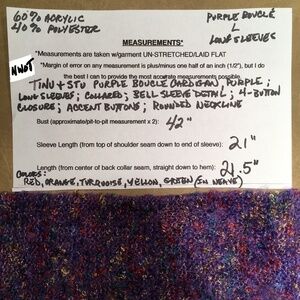 60% ACRYLIC
40% POLYESTER
PURPLE BOUCLÉ
L
LONG SLEEVES
MEASUREMENTS*
*Measurements are taken w/garment UN-STRETCHED/LAID FLAT
*Margin of error on any measurement is plus/minus one half of an inch (1/2"), but I do
the best I can to provide the most accurate measurements possible.
NWOT
TINU + STU PURPLE BOUCLE CARDIGAN, PURPLE;
LONG SLEEVES; COLLARED; BELL SLEEVE DETAIL; 4-BUTTON
CLOSURE; ACCENT BUTTONS; ROUNDED NECKLINE
Bust (approximate/pit-to-pit measurement x 2): 42"
Sleeve Length (from top of shoulder seam down to end of sleeve): 21"
Length (from center of back collar seam, straight down to hem): 21.5"
COLORS:
RED, ORANGE, TURQUOISE, YELLOW, GREEN (IN WEAVE)